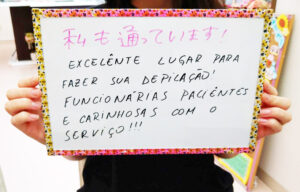 私も通っています!
EXCELÊNTE LUGAR PARA
FAZER SUA DEPILAÇÃO!
FUNCIONÁRIAS PACIÊNTES
E CARINHOSAS COM O
SERVIÇO!!!